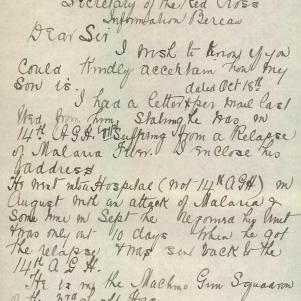 Secretary of the Red Cross
Information Bereau
Dear Sir
I wish to know if you
Could Kindly accertain how my
Son is. dated Oct 18th
I had a letter per mail last
Wed from him, stating he was in
14th A.G.H. Suffering from a Relapse
of Malaria Fever. I enclose his
address
He went into Hospital (not 14th AGH) in
August with an attack of Malaria &
Some time in Sept he rejoined his Unit
& was only out 10 days when he got
the relapse & was sent back to the
14th A G H.
He is in the Machine Gun Squadron